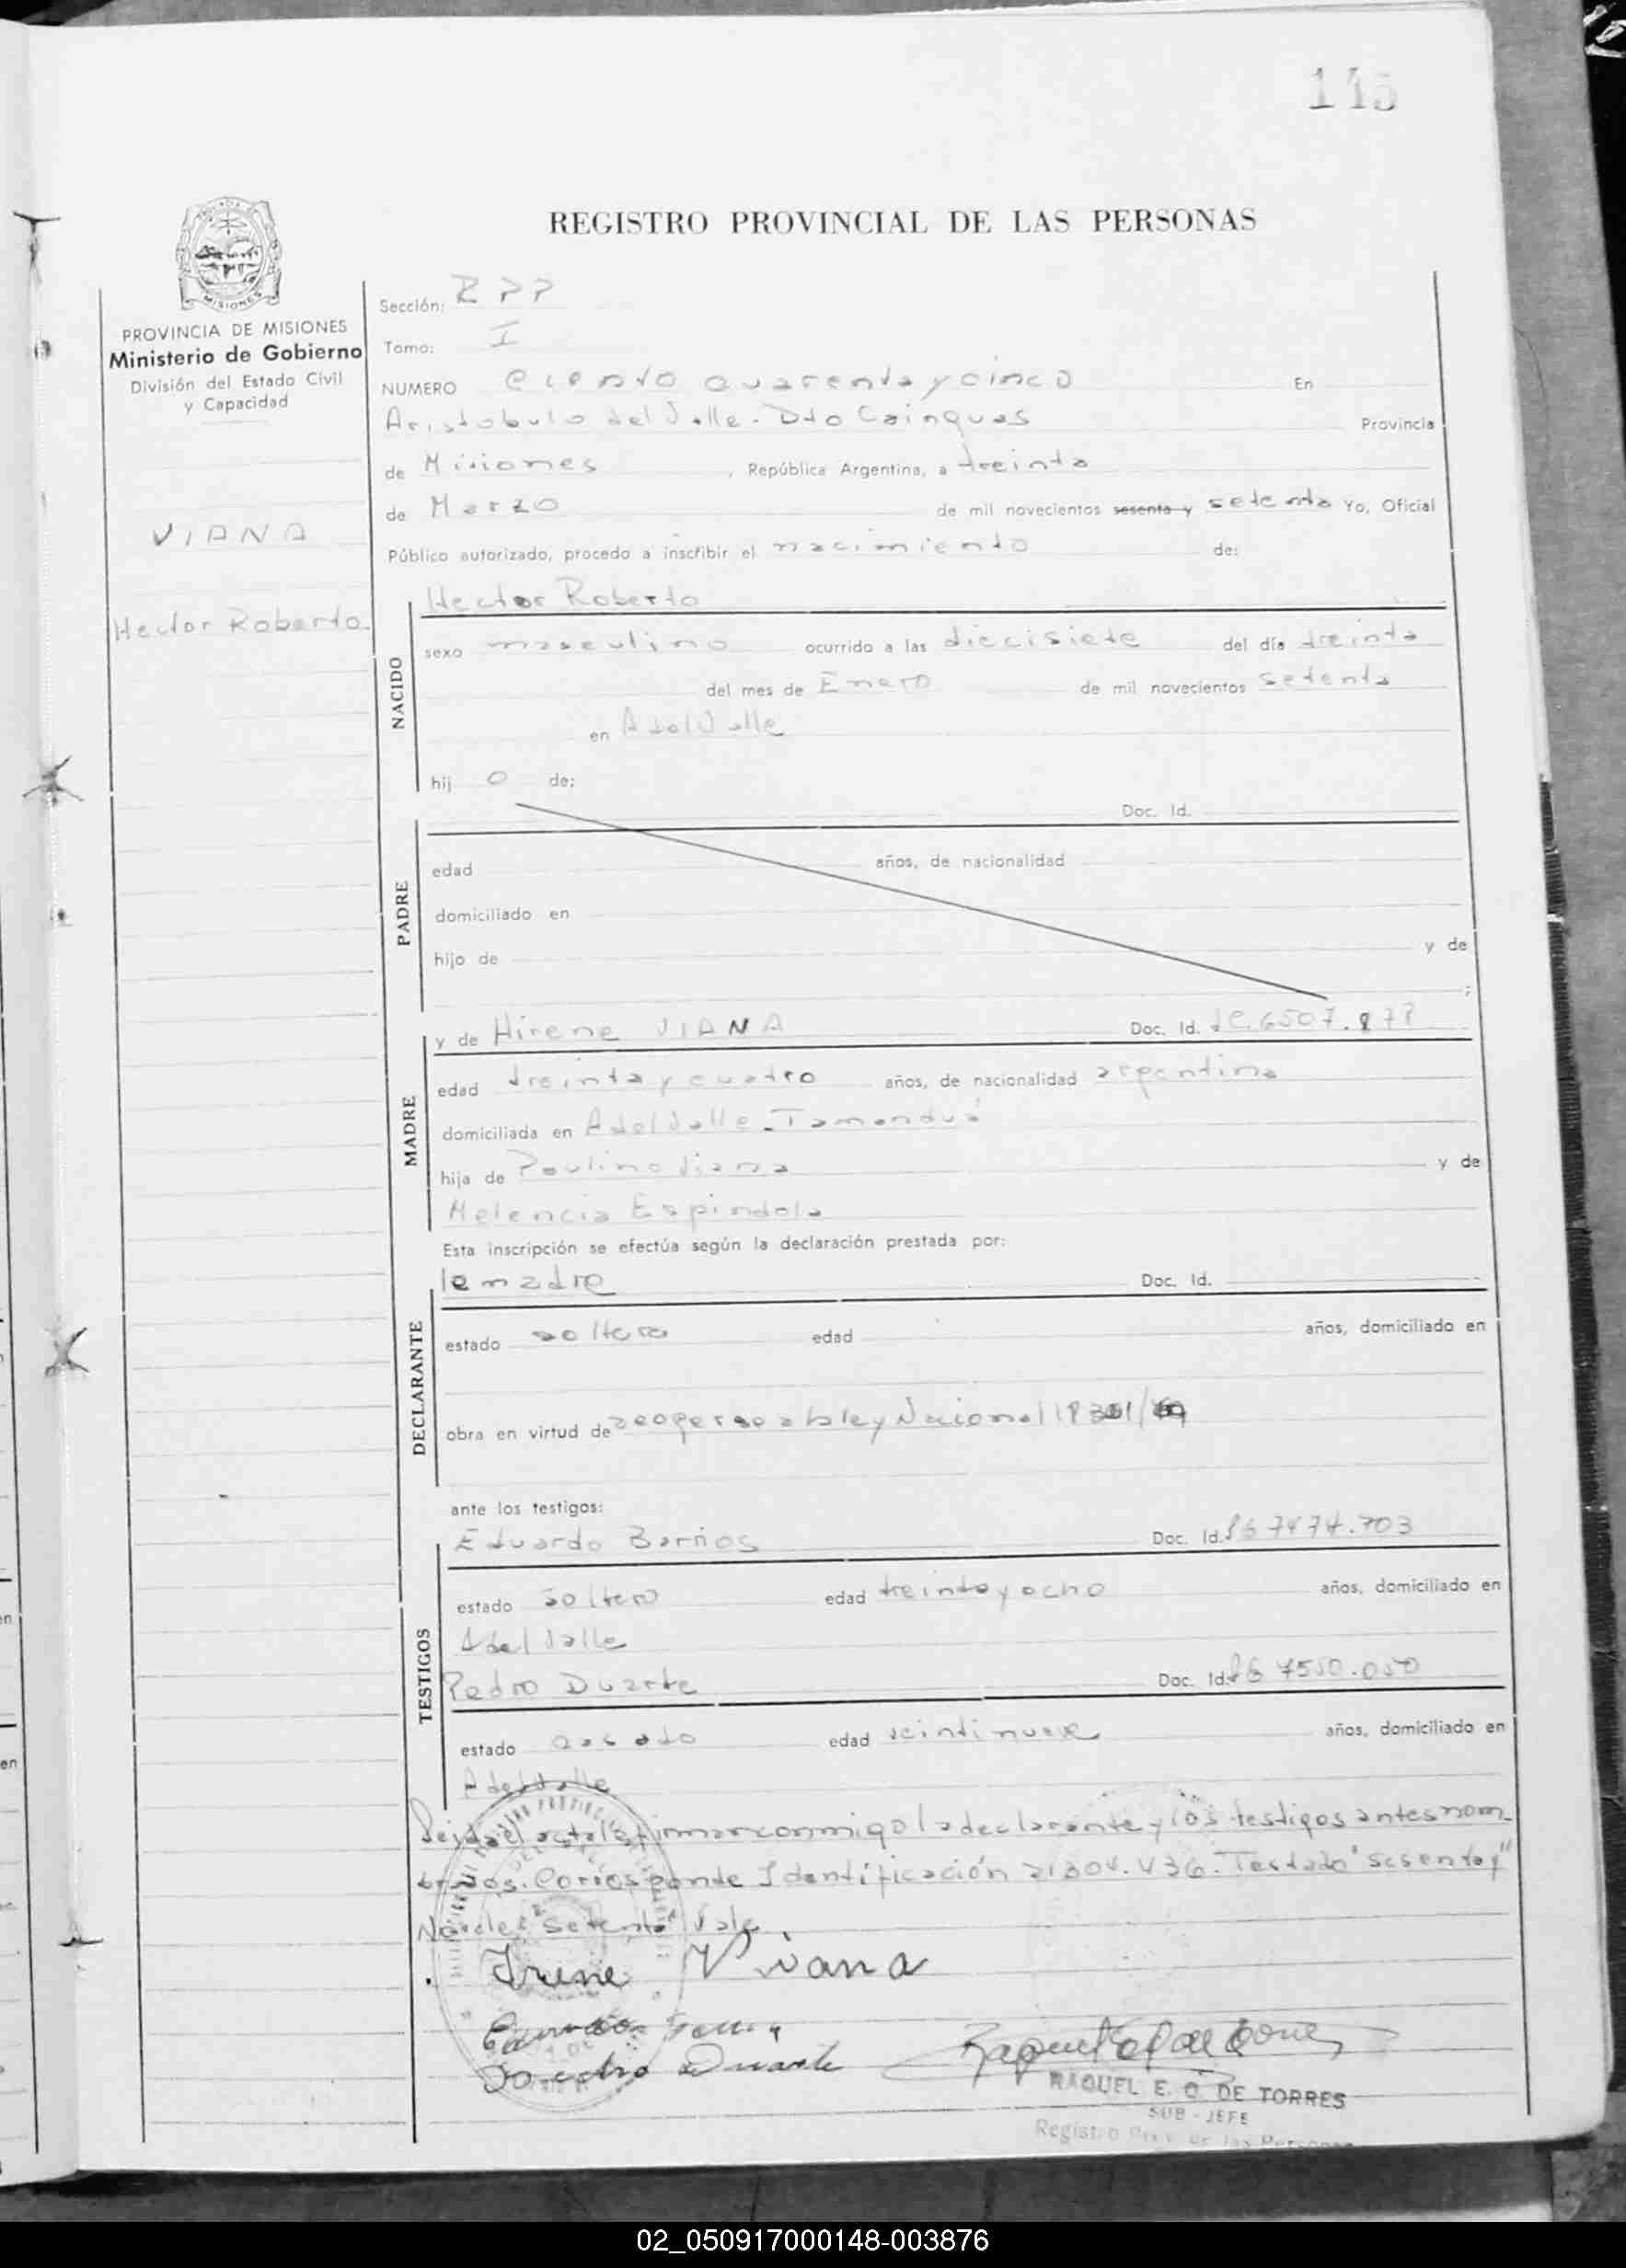 145
REGISTRO PROVINCIAL DE LAS PERSONAS
MISIONES
PROVINCIA DE MISIONES
Ministerio de Gobierno
División del Estado Civil
y Capacidad
VIANA
Hector Roberto
Sección: RPP
Tomo: I
NUMERO Ciento cuarenta y cinco En
Aristobulo del Valle - Dto Cainguas Provincia
de Misiones , República Argentina, a treinta
de Marzo de mil novecientos sesenta y setenta Yo, Oficial
Público autorizado, procedo a inscribir el nacimiento de:
NACIDO
Hector Roberto
sexo masculino ocurrido a las diecisiete del día treinta
del mes de Enero de mil novecientos setenta
en A del Valle
hij o de:
PADRE
Doc. Id.
edad años, de nacionalidad
domiciliado en
hijo de y de
;
MADRE
y de Hirene VIANA Doc. Id. 6507.877
edad treinta y cuatro años, de nacionalidad argentina
domiciliada en A del Valle - Tamanduá
hija de Paulino Viana y de
Melencia Espindola
Esta inscripción se efectúa según la declaración prestada por:
DECLARANTE
la madre Doc. Id.
estado soltera edad años, domiciliado en
obra en virtud de acogerse a la ley Nacional
ante los testigos:
TESTIGOS
Eduardo Barrios Doc. Id. 7474.703
estado soltero edad treinta y ocho años, domiciliado en
A del Valle
Pedro Duarte Doc. Id. 7550.050
estado casado edad veintinueve años, domiciliado en
A del Valle
Leida el acta la firman conmigo la declarante y los testigos antes nom-
brados. Corresponde Identificación 21304.436. Testado "sesenta y"
No vale: "Setenta" Vale
Irene Viana
Pedro Duarte
RAQUEL E. O. DE TORRES
SUB - JEFE
Registro Prov. de las Personas
02_050917000148-003876